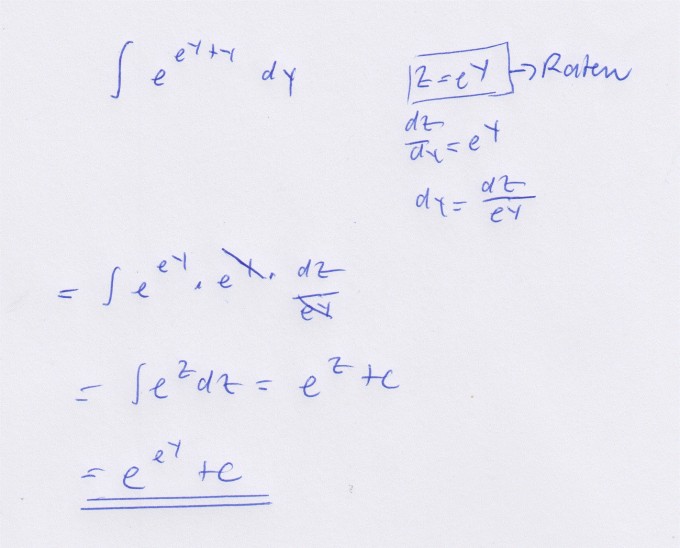 ∫ e^(e^y+y) dy
z=e^y → Raten
dz/dy = e^y
dy = dz/e^y
= ∫ e^(e^y) · e^y · dz/e^y
= ∫ e^z dz = e^z + c
= e^(e^y) + c